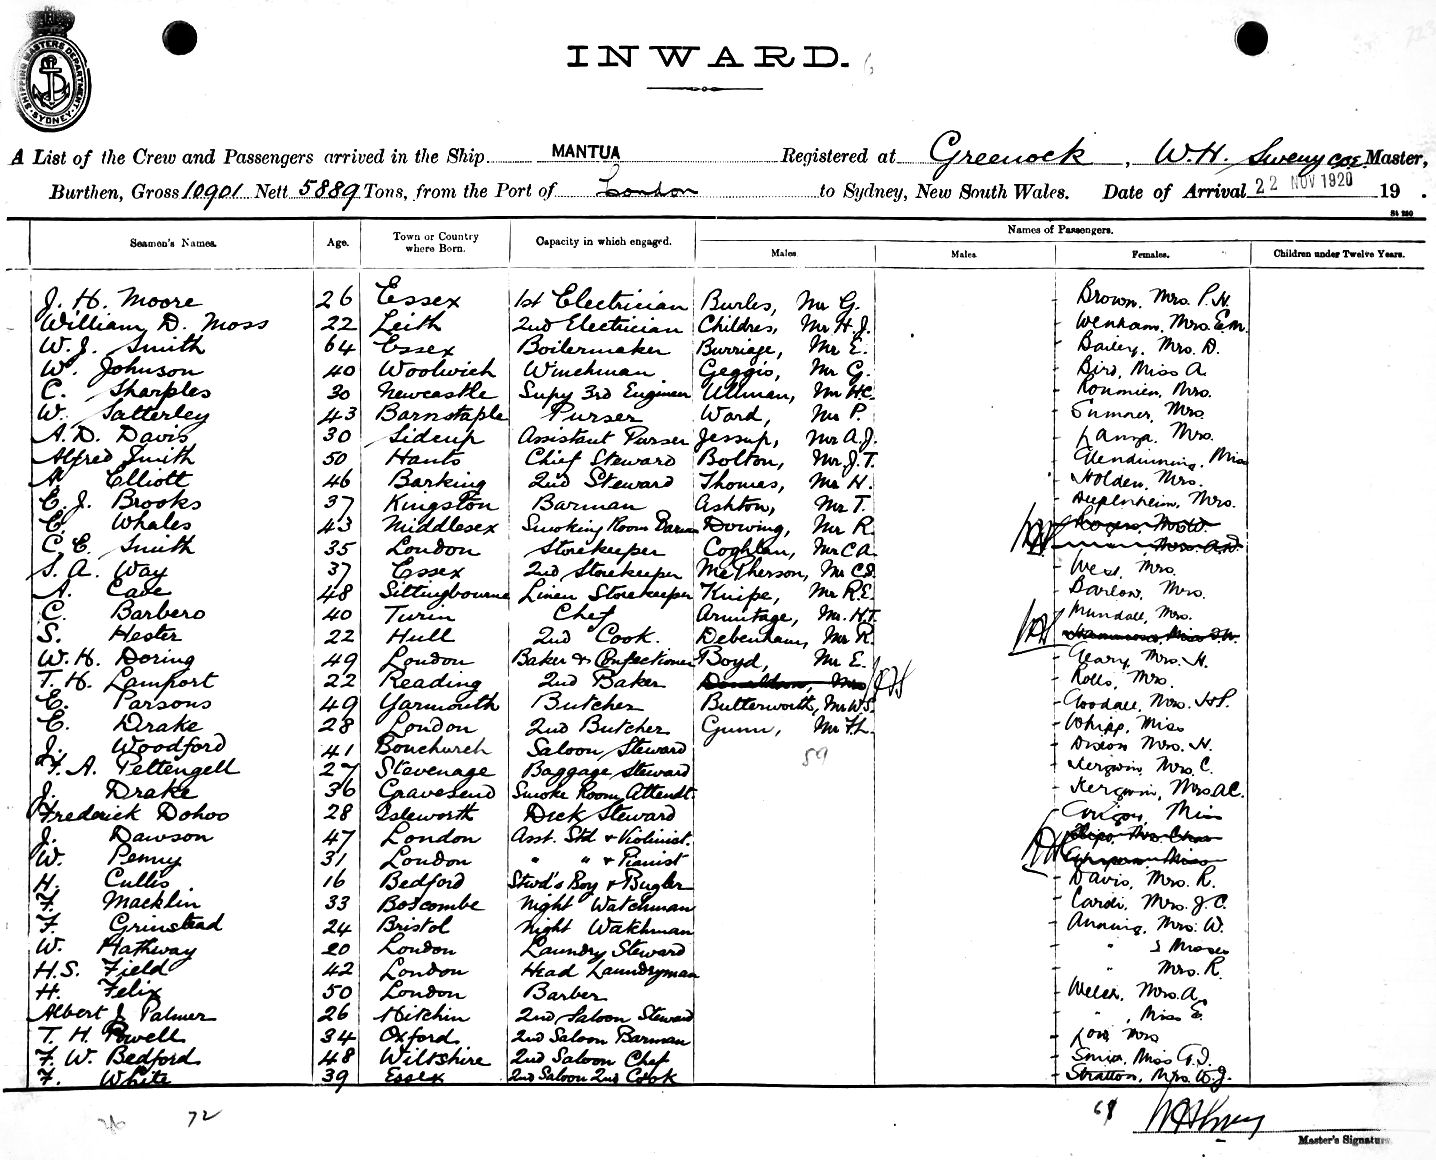 SHIPPING MASTERS DEPARTMENT SYDNEY
INWARD.
A List of the Crew and Passengers arrived in the Ship MANTUA Registered at Greenock, W.H. Sweny CBE Master,
Burthen, Gross 10901 Nett 5889 Tons, from the Port of London to Sydney, New South Wales. Date of Arrival 22 NOV 1920 19 .
Names of Passengers.
Seamen's Names. Age. Town or Country where Born. Capacity in which engaged. Males Males. Females. Children under Twelve Years.
J. H. Moore 26 Essex 1st Electrician Burles, Mr G. Brown, Mrs. P.H.
William D. Moss 22 Leith 2nd Electrician Childres, Mr H.J. Wenham, Mrs. E.M.
W.J. Smith 64 Essex Boilermaker Burriage, Mr E. Bailey, Mrs. D.
W. Johnson 40 Woolwich Winchman Geggis, Mr G. Bird, Miss A.
C. Sharples 30 Newcastle Supy 3rd Engineer Ullman, Mr H.C. Mrs.
W. Satterley 43 Barnstaple Purser Ward, Mr P. Sumner, Mrs.
A.D. Davis 30 Sidcup Assistant Purser Jessup, Mr A.J. Mrs.
Alfred Smith 50 Hants Chief Steward Bolton, Mr J.T. Glendinning, Miss
A. Elliott 46 Barking 2nd Steward Thomas, Mr H. Holden, Mrs.
E. J. Brooks 37 Kingston Barman Ashton, Mr T. Mrs.
C. Whales 43 Middlesex Smoking Room Barman Dowing, Mr R. Rogers, Mrs W.
C. E. Smith 35 London Storekeeper Coghlan, Mr C.A. Mrs. A.W.
S. A. Way 37 Essex 2nd Storekeeper McPherson, Mr C.S. West, Mrs.
A. Case 48 Sittingbourne Linen Storekeeper Knipe, Mr R.E. Barlow, Mrs.
C. Barbero 40 Turin Chef Armitage, Mr. H.T. Mundall, Mrs.
S. Hester 22 Hull 2nd Cook. Debenham, Mr R. Miss
W. H. Doring 49 London Baker & Confectioner Boyd, Mr E. Geary, Mrs. H.
T. H. Lamport 22 Reading 2nd Baker Donaldson, Mrs Rolls, Mrs.
E. Parsons 49 Yarmouth Butcher Butterworth, Mr W.S. Goodall, Mrs. H.S.
C. Drake 28 London 2nd Butcher Gunn, Mr F.L. Whipp, Miss
J. Woodford 41 Bonchurch Saloon Steward 59 Dixon Mrs. H.
F. A. Pettengell 27 Stevenage Baggage Steward Kerguin, Mrs. C.
J. Drake 36 Gravesend Smoke Room Attendt. Kerguin, Mrs A.C.
Frederick Dohoo 28 Isleworth Deck Steward Miss
J. Dawson 47 London Asst. Std & Violinist.
W. Penny 31 London " " & Pianist Miss
H. Cullis 16 Bedford Stwd's Boy & Bugler Davis, Mrs. R.
F. Macklin 33 Boscombe Night Watchman Cardi, Mrs. J.C.
F. Grinstead 24 Bristol Night Watchman Anning, Mrs. W.
W. Hathway 20 London Laundry Steward "
H.S. Field 42 London Head Laundryman " Mrs. R.
H. Felix 50 London Barber Mrs. A.
Albert J. Palmer 26 Hitchin 2nd Saloon Steward " , Miss E.
T. H. Powell 34 Oxford 2nd Saloon Barman Mrs
F. W. Bedford 48 Wiltshire 2nd Saloon Chef Miss G.I.
F. White 39 Essex 2nd Saloon 2nd Cook Stratton, Mrs. W.J.
72
WHSweny
Master's Signature.